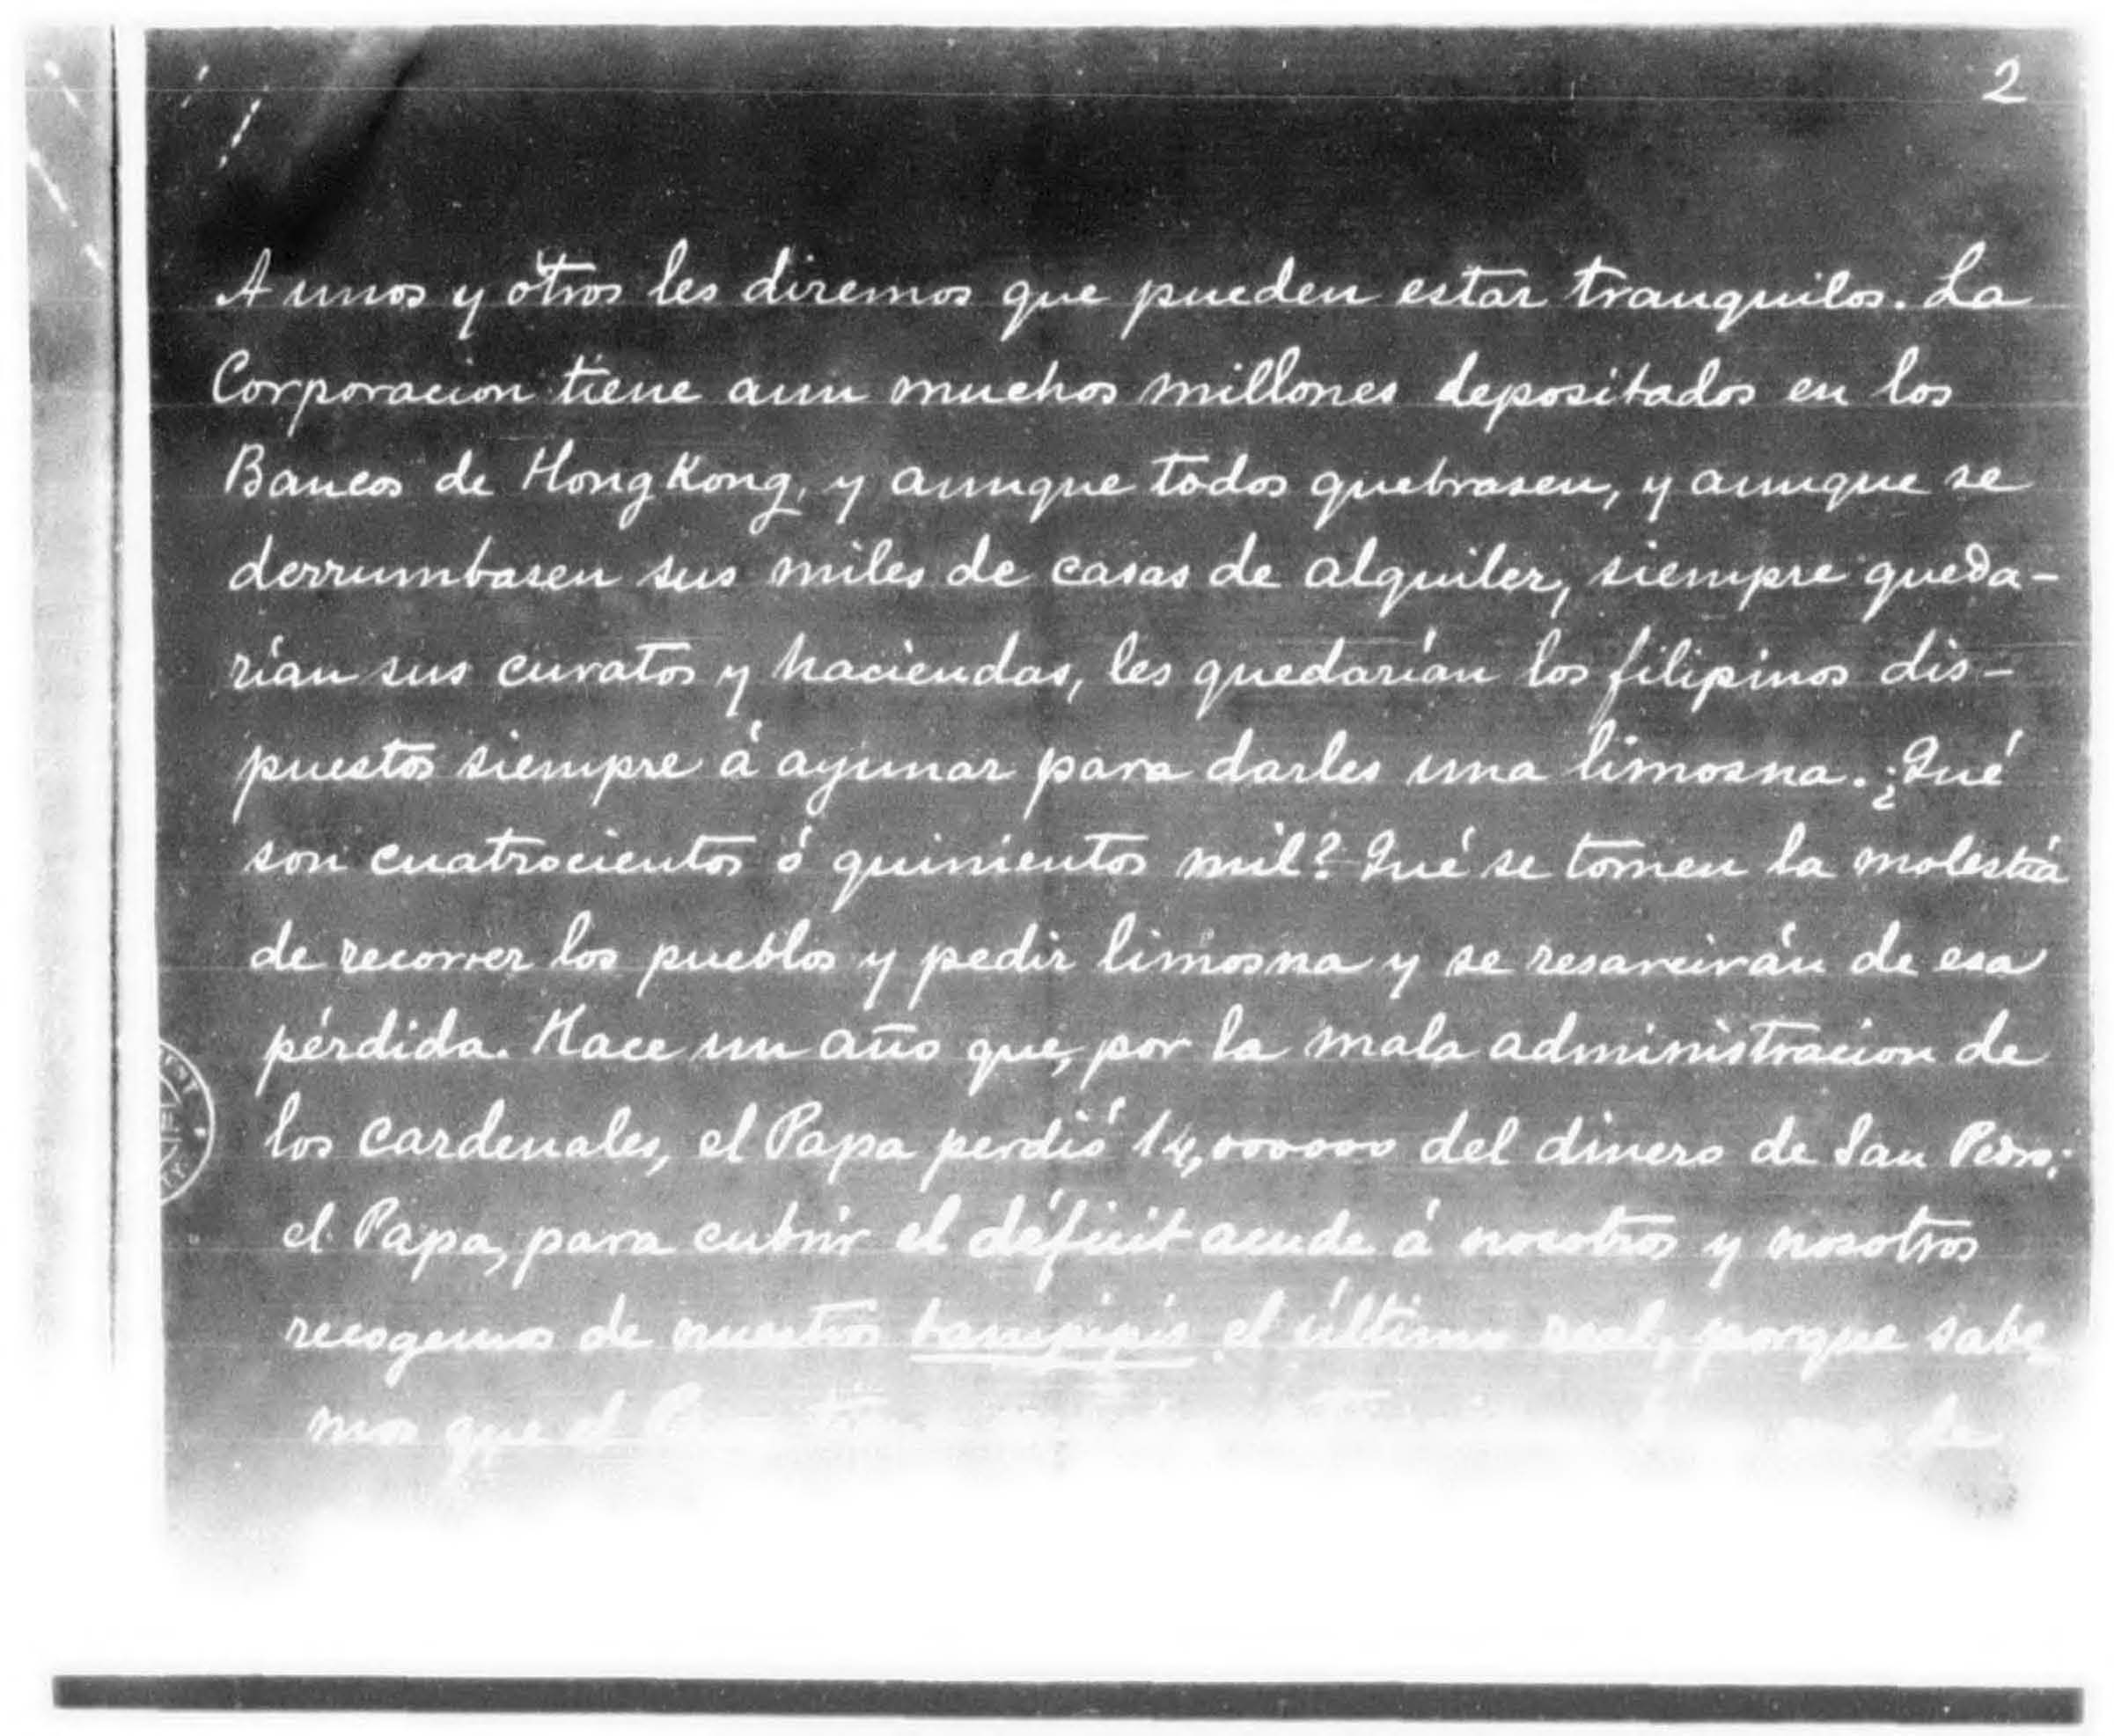 2
A unos y otros les diremos que pueden estar tranquilos. La
Corporacion tiene aun muchos millones depositados en los
Bancos de Hong Kong, y aunque todos quebrasen, y aunque se
derrumbasen sus miles de casas de alquiler, siempre queda-
rían sus curatos y haciendas, les quedarían los filipinos dis-
puestos siempre á ayunar para darles una limosna. ¿Qué
son cuatrocientos ó quinientos mil? Qué se tomen la molestia
de recorrer los pueblos y pedir limosna y se resarcirán de esa
pérdida. Hace un año que, por la mala administracion de
los cardenales, el Papa perdió 14,000000 del dinero de San Pedro;
el Papa, para cubrir el déficit acude á nosotros y nosotros
recogemos de nuestros tampipis el último real, porque sabe
mos que el